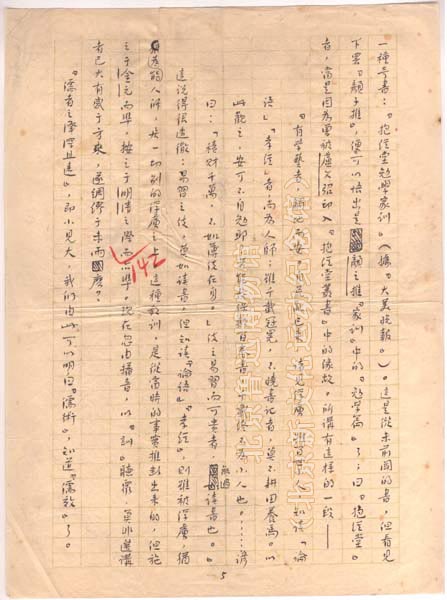 一種奇書：『抱經堂勉學家訓』（據『大美晚報』）。這是從未前聞的書，但看見
下署『顏子推』，便可以悟出是顏之推『家訓』中的『勉學篇』了；曰『抱經堂』
者，當是因為曾被盧文弨印入『抱經堂叢書』中的緣故。所講有這樣的一段——
『有學藝者，觸地而安。自荒亂已來，諸見俘虜，雖百世小人，知讀『論
語』『孝經』者，尚為人師；雖千載冠冕，不曉書記者，莫不耕田養馬。以
此觀之，汝可不自勉耶？若能常保數百卷書，千載終不為小人也。……諺
曰：『積財千萬，不如薄伎在身。』伎之易習而可貴者，無過讀書也。』
這說得很透徹：易習之伎，莫如讀書，但知讀『論語』『孝經』，則雖被俘虜，猶
能為人師，居一切別的俘虜之上。這種教訓，是從當時的事實推斷出來的，但施
之于金元而準，按之于明清之際而亦準。現在忽由播音，以『訓』聽衆，莫非選講
者已大有感于方來，遂綢繆于未雨麽？
『儒者之澤深且遠』，即小見大，我們由此可以明白『儒術』，知道『儒效』了。
142
5
北京鲁迅博物馆
（北京新文化运动纪念馆）